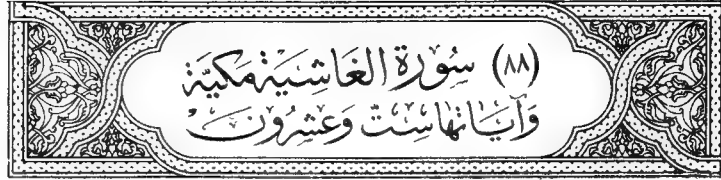 (٨٨) سُورَة الغَاشِيَة مَكيَّة
وَآيَاتهَا سِتّ وَعشرُونَ